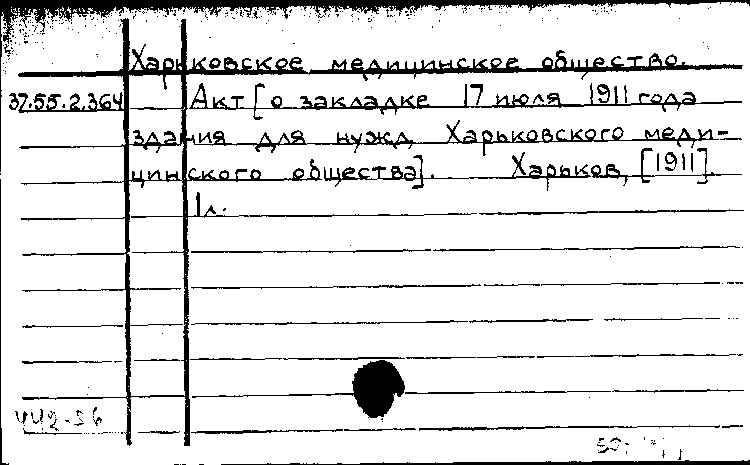 Харьковское медицинское общество.
37.55.2.364 Акт [о закладке 17 июля 1911 года
здания для нужд Харьковского меди-
цинского общества]. Харьков, [1911].
1л.